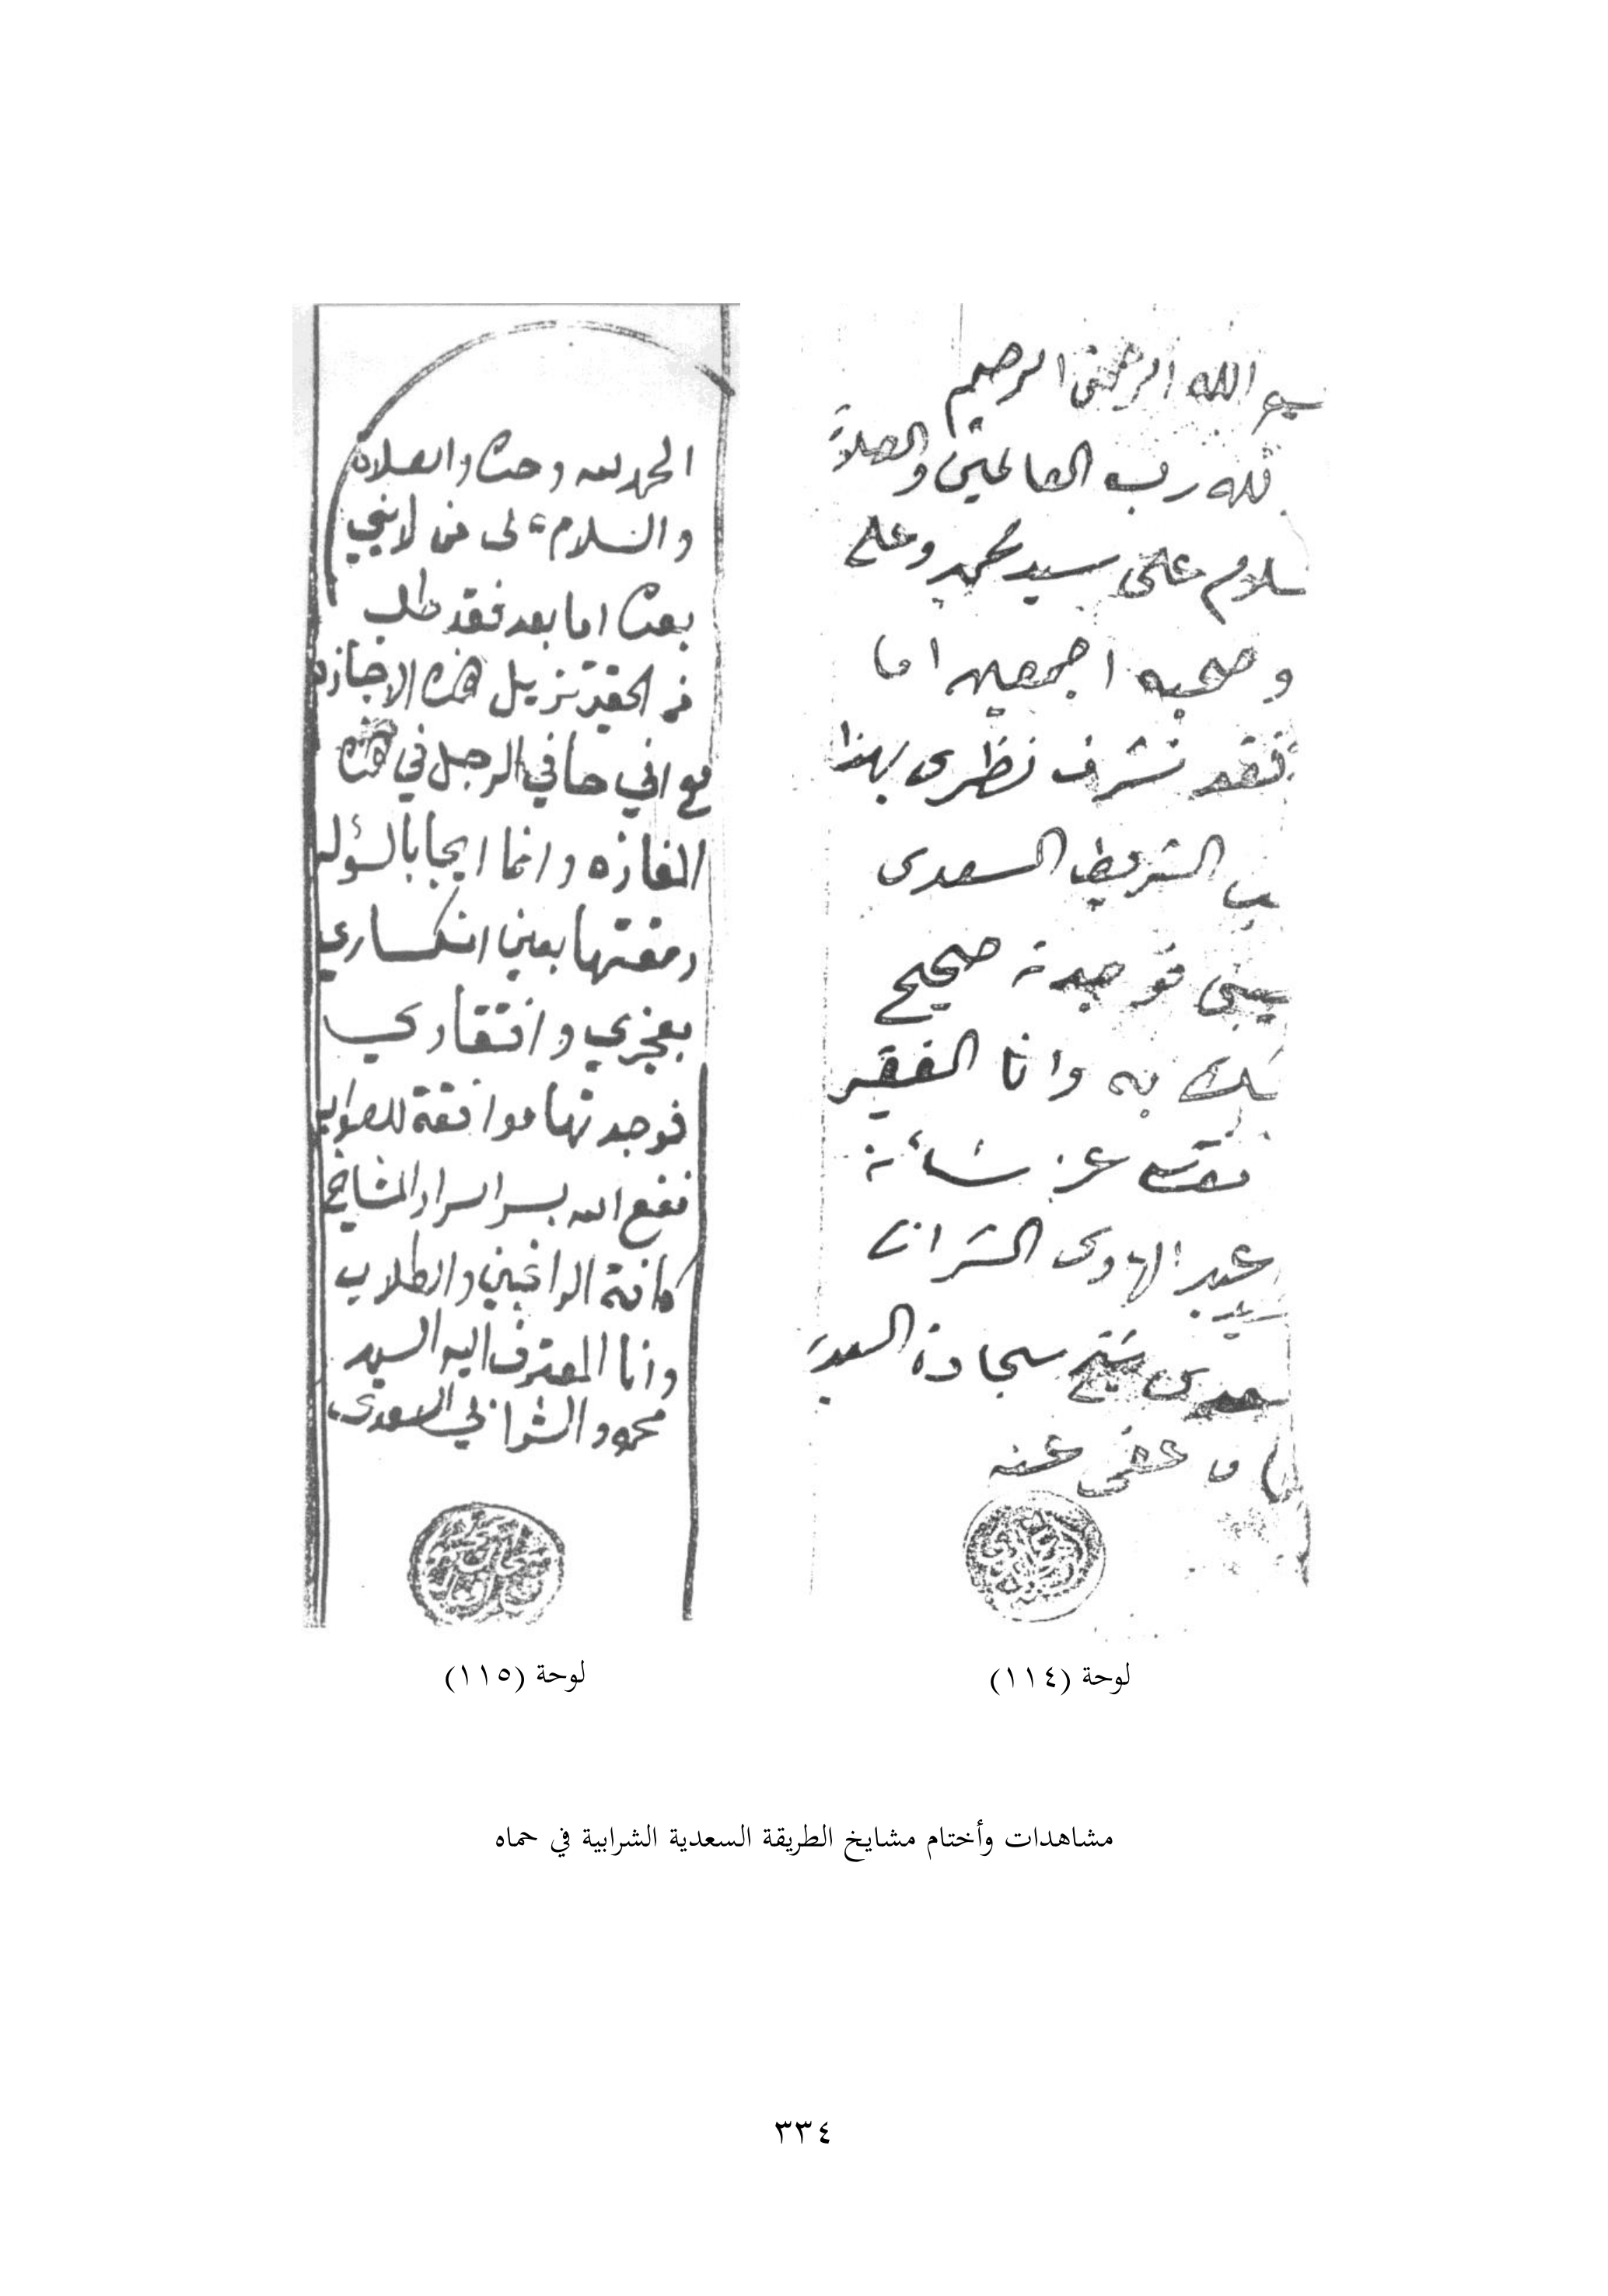 سم الله الرحمن الرحيم
لله رب العالمين والصلاة
سلام على سيد محمد وعلى
وصحبه اجمعين اما
فقد تشرف نظرى بهذا
ب الشريف السعدى
فوجدته صحيح
به وانا الفقير
عز شأنه
عبد الهادى الشرابى
سعدى شيخ سجادة السعديه
عفى عنه
لوحة (١١٤)
الحمد لله وحده والصلاة
والسلام على من لا نبي
بعده اما بعد فقد طلب
من الحقير تنزيل هذه الاجازه
مع اني حافي الرجل في هذه
المفازه وانما ايجابا لسؤله
رمقتها بعين انكساري
بعجزي وافتقاري
فوجدتها موافقة للصواب
فنفع الله بسر اسرار المشايخ
كافة الراغبين والطلاب
وانا المعترف اليه السيد
محمود الشرابي السعدى
لوحة (١١٥)
مشاهدات وأختام مشايخ الطريقة السعدية الشرابية في حماه
٣٣٤